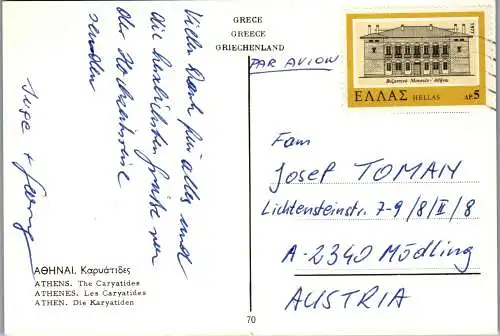 GRECE
GREECE
GRIECHENLAND
PAR AVION
1977
Βυζαντινό Μουσείο - Αθήναι
ΕΛΛΑΣ HELLAS ΔΡ.5
Vielen Dank für alles und
die herzlichsten Grüße von
der Hochzeitsreise
senden
Inge +
Fam
Josef TOMAN
Lichtensteinstr. 7-9/8/II/8
A-2340 Mödling
AUSTRIA
ΑΘΗΝΑΙ. Καρυάτιδες
ATHENS. The Caryatides
ATHENES. Les Caryatides
ATHEN. Die Karyatiden
70